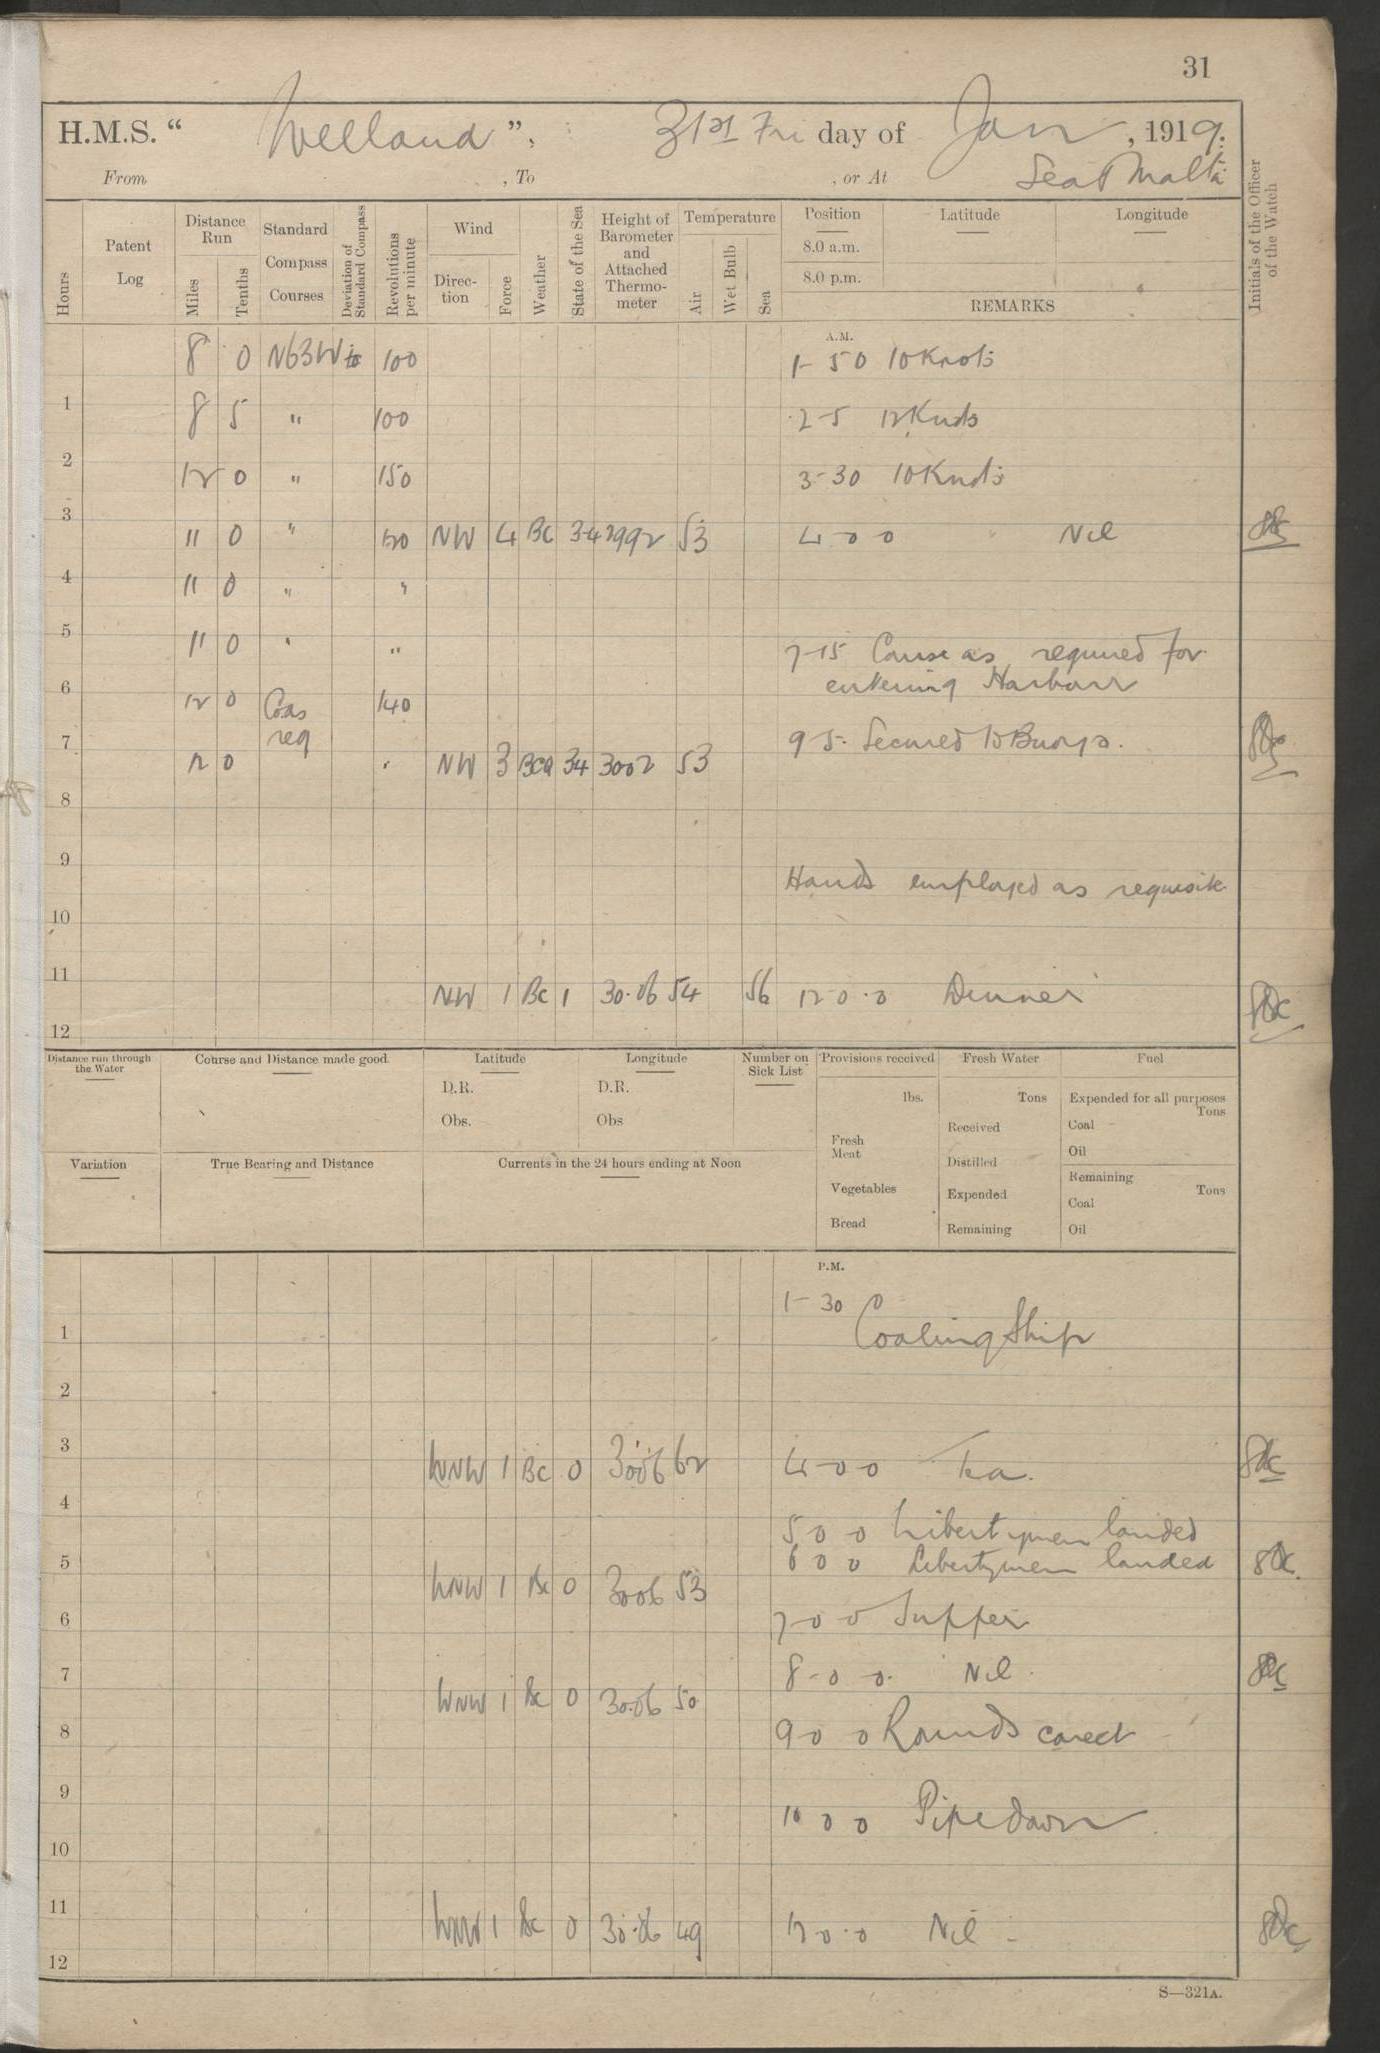 31
H.M.S. “ Welland ”. 31st Fri day of Jan, 1919.
From , To , or At Sea & Malta
Initials of the Officer of the Watch
Hours
Patent Log
Distance Run
Miles
Tenths
Standard Compass Courses
Deviation of Standard Compass
Revolutions per minute
Wind
Direction
Force
Weather
State of the Sea
Height of Barometer and Attached Thermometer
Temperature
Air
Wet Bulb
Sea
Position Latitude Longitude
8.0 a.m.
8.0 p.m.
REMARKS
A.M.
8 0 N63W 100 1- 50 10 Knots
1 8 5 " 100 2-5 12 Knots
2 12 0 " 150 3-30 10 Knots
3 11 0 " 120 NW 4 BC 34 2992 53 4 0 0 Nil
4 11 0 " "
5 11 0 " " 7-15 Course as required for
entering Harbour
6 12 0 Co as req 140
7 12 0 " NW 3 BCQ 34 3002 53 9 5- Secured to Buoys.
8
9
Hands employed as requisite
10
11 NW 1 BC 1 30.06 54 56 12.0.0 Dinner
12
Distance run through the Water
Course and Distance made good
Latitude
D.R.
Obs.
Longitude
D.R.
Obs
Number on Sick List
Provisions received
lbs.
Fresh Meat
Vegetables
Bread
Fresh Water
Tons
Received
Distilled
Expended
Remaining
Fuel
Expended for all purposes
Tons
Coal
Oil
Remaining
Tons
Coal
Oil
Variation
True Bearing and Distance
Currents in the 24 hours ending at Noon
P.M.
1- 30 0
1 Coaling Ship
2
3 WNW 1 BC 0 3006 62 4-0 0 Tea.
4
5 0 0 Libertymen landed
5 6 0 0 Libertymen landed
WNW 1 BC 0 3006 53
6 7 0 0 Supper
7 8-0 0. Nil.
WNW 1 BC 0 30.06 50
8 9 0 0 Rounds correct
9
10 0 0 Pipe down
10
11 WNW 1 BC 0 30.06 49 12 0.0 Nil -
12
S—321A.